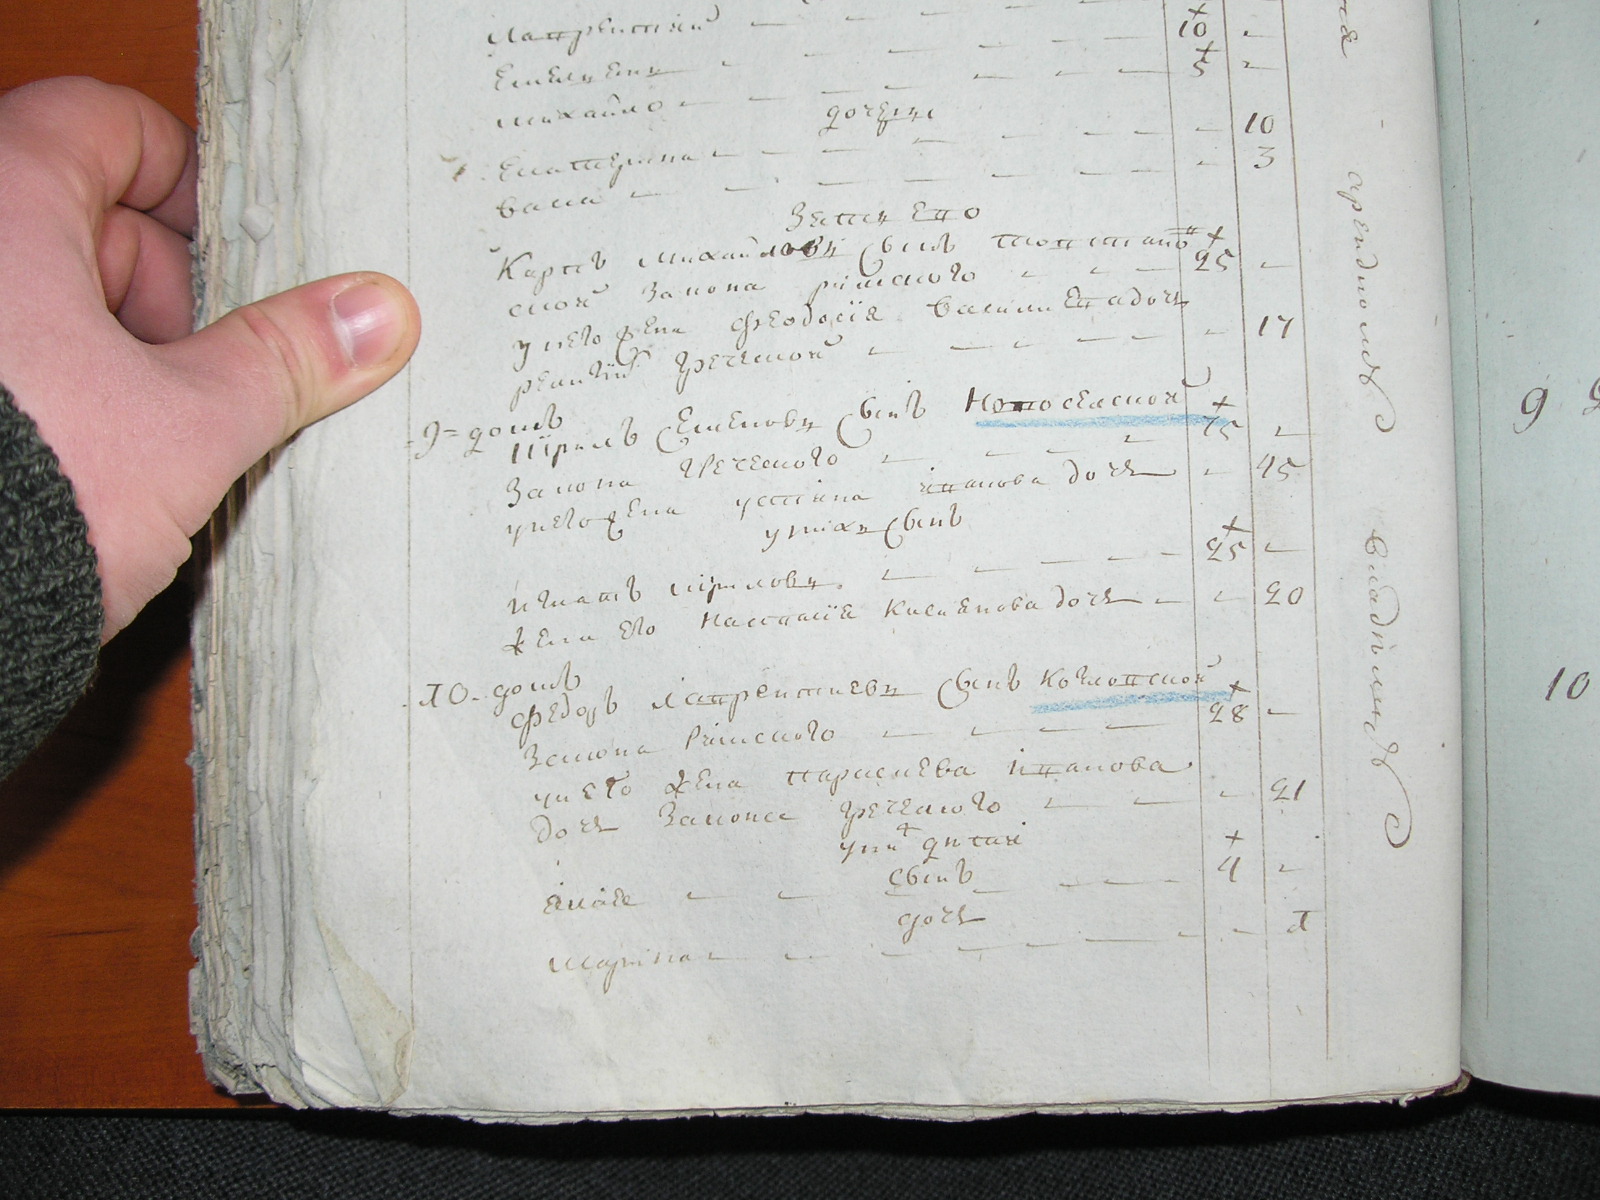 Лаврентий 10
Емельянъ 5
михайло
дочери
Екатерина 10
васа 3
Зять Его
Карпъ михайловъ Сынъ
ской Закона римского 25
у него жена феодосия василиева дочь
религии греческой 17
9= домъ
Кирилъ Семеновъ Сынъ Новоселской
Закона греческого 75
у него жена устина иванова дочь 45
у них Сынъ
игнатъ кириловъ 25
жена Его Настасия Касиянова дочь 20
10. домъ
федоръ Лаврентиевъ Сынъ Козловской
Закона Римского 28
у него жена параскева ивановa
дочь Закона греческого 21
у них дитяи
Сынъ
4
дочь
марина 1
арендномъ
владении
9
10